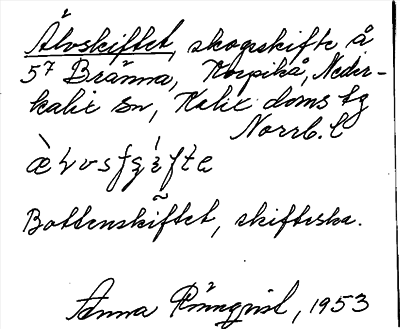 Älvskiftet, skogsskifte å
57 Bränna, Korpikå, Neder-
kalix sn, Kalix doms tg
Norrb. l
Bottenskiftet, skifteska.
Anna Rönnqvist, 1953